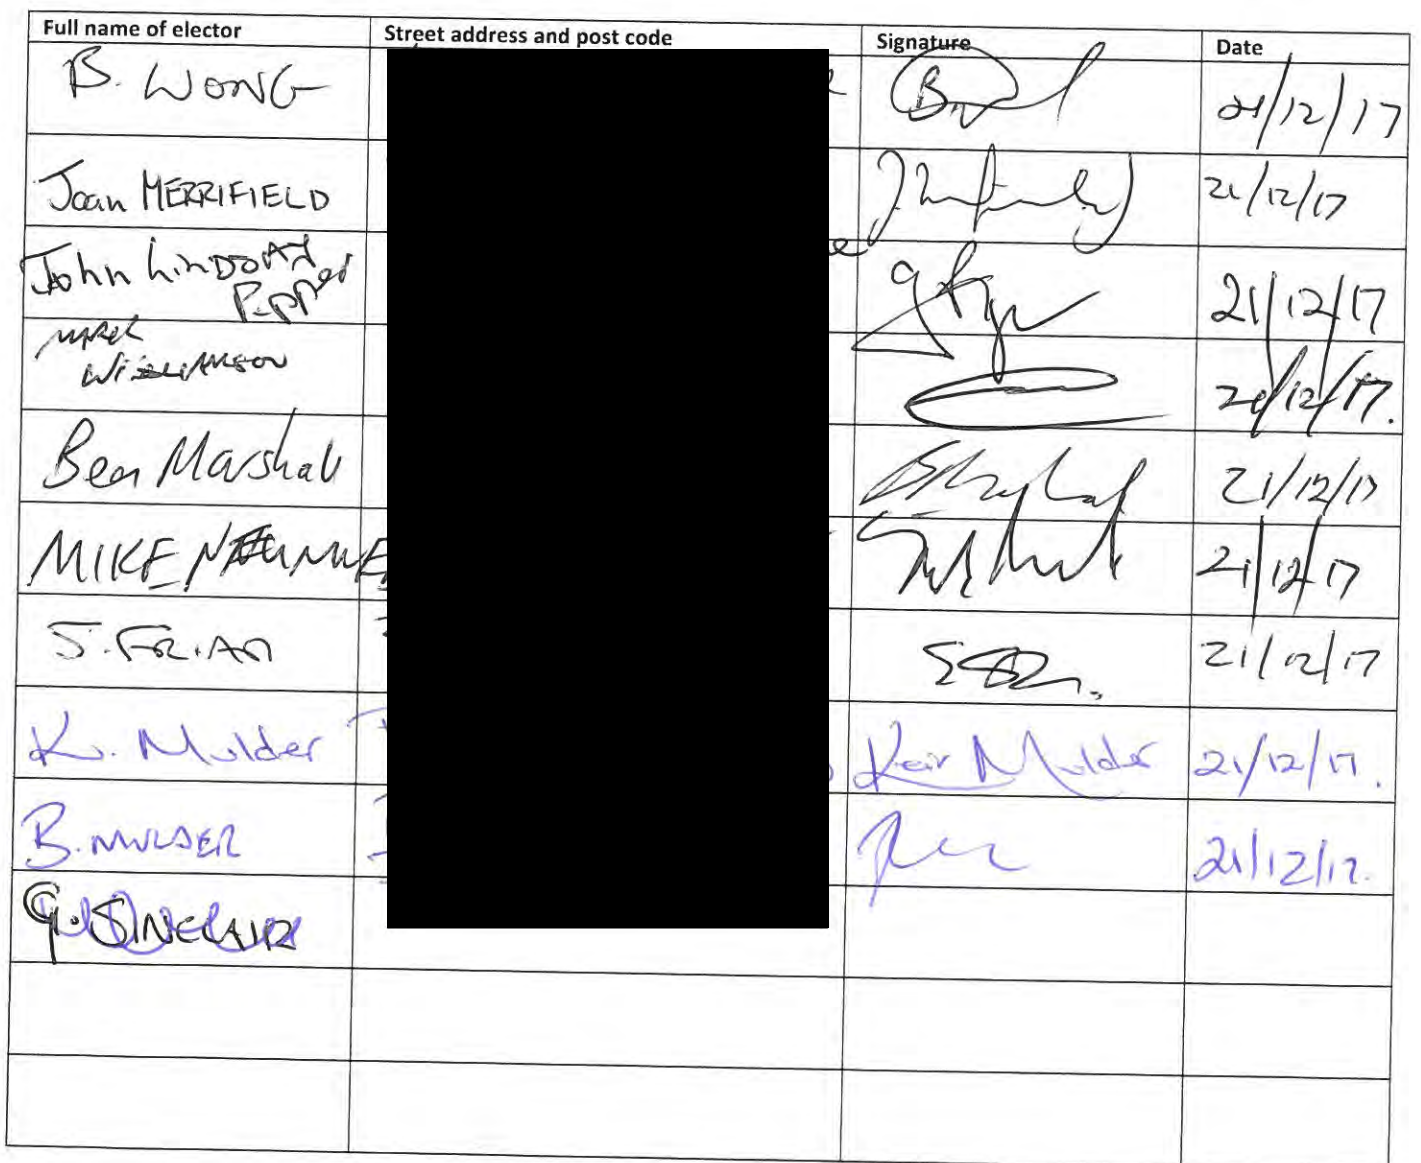 Full name of elector Street address and post code Signature Date
B. WONG 21/12/17
Joan MERRIFIELD 21/12/17
John LINDSAY
Pepper 21/12/17
MARK
WILLIAMSON 20/12/17.
Ben Marshall 21/12/17
MIKE 21/12/17
J. 21/12/17
K. Mulder Keir Mulder 21/12/17.
B. MULDER 21/12/17.
G. SINCLAIR